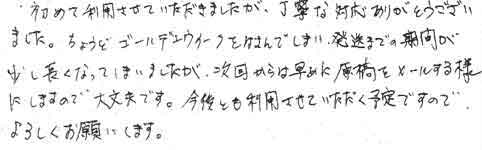 ・初めて利用させていただきましたが、丁寧な対応ありがとうござい
ました。ちょうどゴールデンウィークをはさんでしまい発送までの期間が
少し長くなってしまいましたが、次回からは早めに原稿をメールする様
にしますので大丈夫です。今後とも利用させていただく予定ですので、
よろしくお願いします。